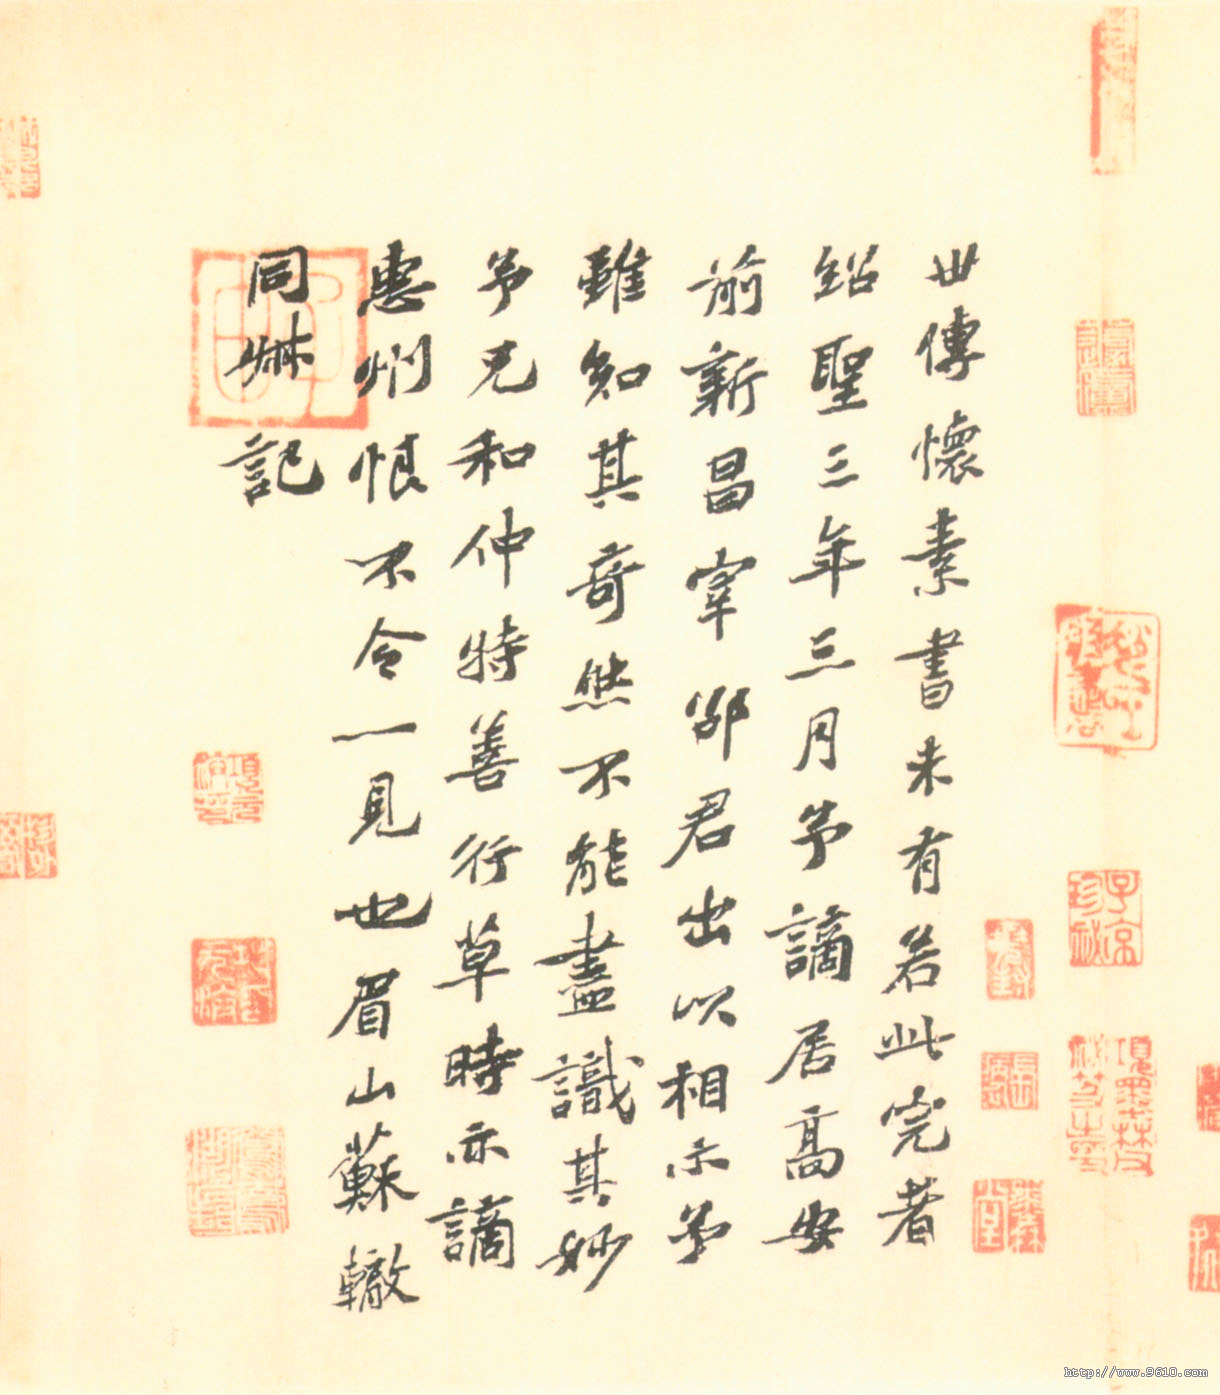 世傳懷素書未有若此完者
紹聖三年三月予謫居高安
前新昌宰邵君出以相示予
雖知其奇然不能盡識其妙
予兄和仲特善行草時亦謫
惠州恨不令一見也眉山蘇轍
同叔記
子京珍秘
項元汴印
http://www.9610.com